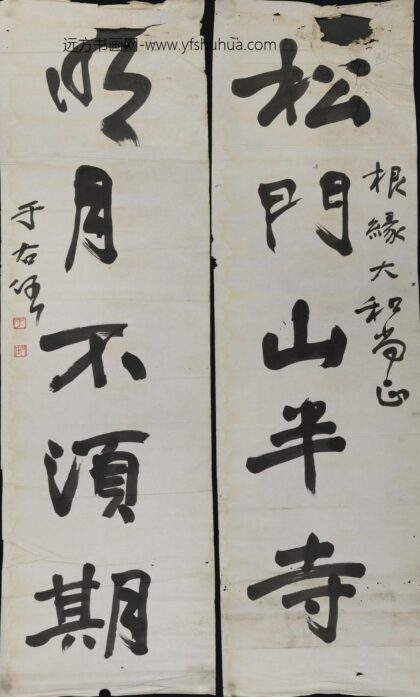 远方书画网-www.yfshuhua.com
根緣大和尚正
松門山半寺
明月不須期
于右任